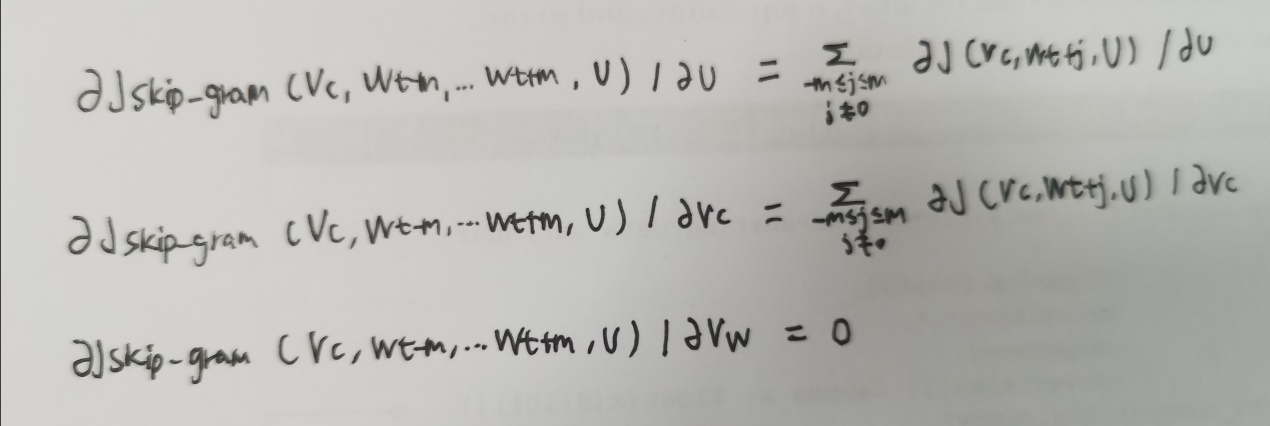 ∂J skip-gram (Vc, Wt-m, ... Wt+m, U) / ∂U = Σ -m≤j≤m j≠0 ∂J (Vc, Wt+j, U) / ∂U
∂J skip-gram (Vc, Wt-m, ... Wt+m, U) / ∂Vc = Σ -m≤j≤m j≠0 ∂J (Vc, Wt+j, U) / ∂Vc
∂J skip-gram (Vc, Wt-m, ... Wt+m, U) / ∂Vw = 0